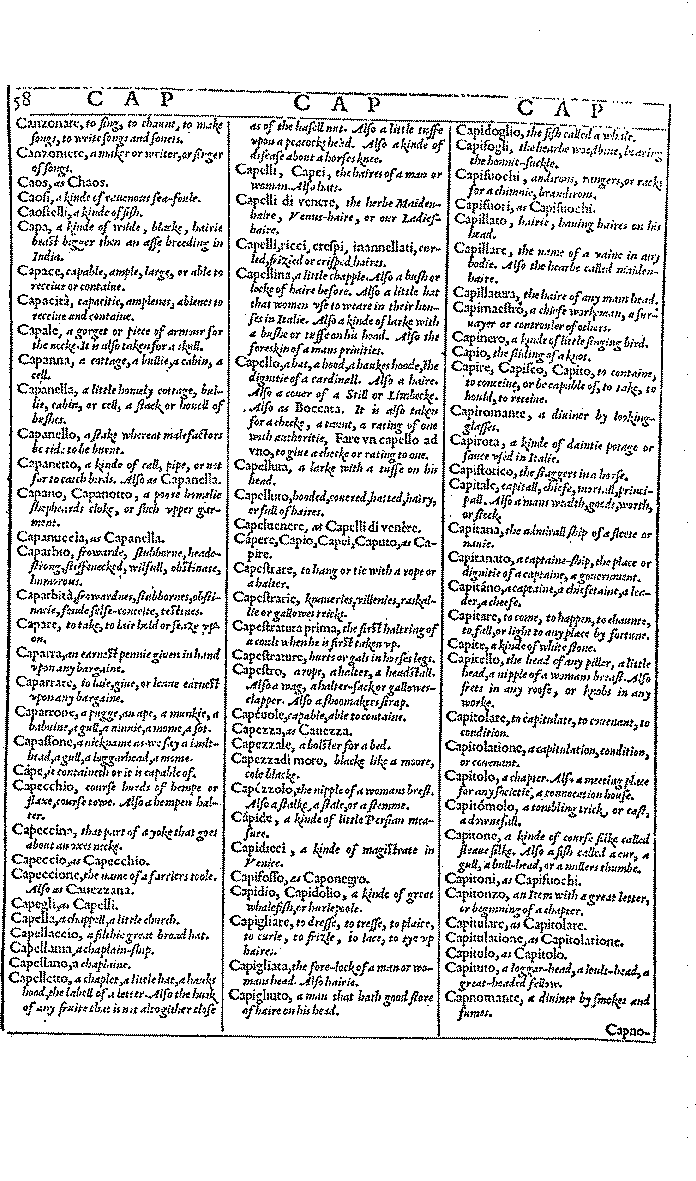 58 CAP CAP CAP
Canzonare, to sing, to chaunt, to make
songs, to write songs and sonets.
Canzoniere, a maker or writer, or singer
of songs.
Caos, as Chaos.
Caosi, a kinde of rauenous sea-foule.
Caostelli, a kinde of fish.
Capa, a kinde of wilde, blacke, hairie
beast bigger then an asse breeding in
India.
Capace, capable, ample, large, or able to
receiue or containe.
Capacità, capacitie, amplenes, ablenes to
receiue and containe.
Capale, a gorget or piece of armour for
the necke. It is also taken for a skull.
Capanna, a cottage, a bullie, a cabin, a
cell.
Capanella, a little homely cottage, bul-
lie, cabin, or cell, a stack or houell of
bushes.
Capanello, a stake whereat malefactors
be tide to be burnt.
Capanetto, a kinde of call, pipe, or net
for to catch birds. Also as Capanella.
Capano, Capanotto, a poore homelie
shepheards cloke, or such vpper gar-
ment.
Capannuccia, as Capanella.
Caparbio, frowarde, stubborne, heade-
strong, stifenecked, wilfull, obstinate,
humorous.
Caparbità, frowardnes, stubbornes, obsti-
nacie, fonde selfe-conceite, testines.
Capare, to take, to laie hold or sease vp-
on.
Caparra, an earnest pennie giuen in hand
vpon any bargaine.
Caparrare, to laie, giue, or leaue earnest
vpon any bargaine.
Caparrone, a pugge, an ape, a munkie, a
babuine, a gull, a ninnie, a mome, a sot.
Capassone, a nickname as we say a loult-
head, a gull, a loggarhead, a mome.
Cápe, it containeth or it is capable of.
Capecchio, course hurds of hempe or
flaxe, course towe. Also a hempen hal-
ter.
Capeccina, that part of a yoke that goes
about an oxes necke.
Capeccio, as Capecchio.
Capeccione, the name of a farriers toole.
Also as Cauezzana.
Capegli, as Capelli.
Capella, a chappell, a little church.
Capellaccio, a filthie great broad hat.
Capellania, a chaplain-ship.
Capellano, a chaplaine.
Capelletto, a chaplet, a little hat, a hauks
hood, the labell of a letter. Also the husk
of any fruite that is not altogither close
as of the hasell nut. Also a little tuffe
vpon a peacocks head. Also a kinde of
disease about a horses knee.
Capelli, Capei, the haires of a man or
woman. Also hats.
Capelli di venere, the herbe Maiden-
haire, Venus-haire, or our Ladies-
haire.
Capelli, ricci, crespi, inannellati, cur-
led, frizled or crisped haires.
Capellina, a little chapple. Also a bush or
locke of haire before. Also a little hat
that women vse to weare in their hou-
ses in Italie. Also a kinde of larke with
a bushe or tuffe on his head. Also the
foreskin of a mans priuities.
Capello, a hat, a hood, a haukes hoode, the
dignitie of a cardinall. Also a haire.
Also a couer of a Still or Limbecke.
Also as Boccata. It is also taken
for a checke, a taunt, a rating of one
with authoritie, Fare va capello ad
vno, to giue a checke or rating to one.
Capellura, a larke with a tuffe on his
head.
Capelluto, hooded, couered, hatted, hairy,
or full of haires.
Capeluenere, as Capelli di venere.
Cápere, Capio, Capei, Caputo, as Ca-
pire.
Capestrare, to hang or tie with a rope or
a halter.
Capestrarie, knaueries, villenies, raskal-
lie or gallowes tricks.
Capestratura prima, the first haltring of
a coult when he is first taken vp.
Capestrature, hurts or gals in horses legs.
Capestro, a rope, a halter, a headstall.
Also a wag, a halter-sack or gallowes-
clapper. Also a shoomakers strap.
Capéuole, capable, able to containe.
Capezza, as Cauezza.
Capezzale, a bolster for a bed.
Capezza di moro, blacke like a moore,
cole blacke.
Capézzolo, the nipple of a womans brest.
Also a stalke, a stale, or a stemme.
Cápide, a kinde of little Persian mea-
sure.
Capidieci, a kinde of magistrate in
Venice.
Capifosso, as Caponegro.
Capidio, Capidolio, a kinde of great
whalefish, or hurlepole.
Capigliare, to dresse, to tresse, to plaite,
to curle, to frizle, to lace, to tye vp
haires.
Capigliata, the fore-lock of a man or wo-
mans head. Also hairie.
Capigliuto, a man that hath good store
of haire on his head.
Capidoglio, the fish called a whale.
Capifogli, the hearbe woodbine, bearing
the honnie-suckle.
Capifuochi, andirons, rangers, or racks
for a chimnie, brandirons.
Capifuori, as Capifuochi.
Capillato, hairie, hauing haires on his
head.
Capillare, the name of a vaine in any
bodie. Also the hearbe called maiden-
haire.
Capillatura, the haire of any mans head.
Capimaestro, a chiefe workman, a sur-
uayer or controuler of others.
Capinero, a kinde of little singing bird.
Capio, the sliding of a knot.
Capire, Capisco, Capito, to containe,
to conceiue, or be capable of, to take, to
hould, to receiue.
Capiromante, a diuiner by looking-
glasses.
Capirota, a kinde of daintie potage or
sauce vsed in Italie.
Capistorico, the staggers in a horse.
Capitale, capitall, chiefe, mortall, princi-
pall. Also a mans wealth, goods, worth,
or stock.
Capitana, the admirall ship of a fleete or
nauie.
Capitanato, a captaine-ship, the place or
dignitie of a captaine, a gouernment.
Capitáno, a captaine, a chiefetaine, a lea-
der, a cheefe.
Capitare, to come, to happen, to chaunce,
to fell, or light to any place by fortune.
Capite, a kinde of white stone.
Capitello, the head of any piller, a little
head, a nipple of a womans breast. Also
frets in any roofe, or knobs in any
worke.
Capitolare, to capitulate, to couenant, to
condition.
Capitolatione, a capitulation, condition,
or couenant.
Capitolo, a chapter. Also a meeting place
for any societie, a conuocation house.
Capitómolo, a tombling trick, or cast,
a downefall.
Capitone, a kinde of course silke called
sleaue silke. Also a fish called a cur, a
gull, a bull-head, or a millers thumbe.
Capitoni, as Capifuochi.
Capitonzo, an Item with a great letter,
or beginning of a chapter.
Capitulare, as Capitolare.
Capitulatione, as Capitolatione.
Capitulo, as Capitolo.
Capiuto, a loggar-head, a loult-head, a
great-headed fellow.
Capnomante, a diuiner by smokes and
fumes.
Capno-